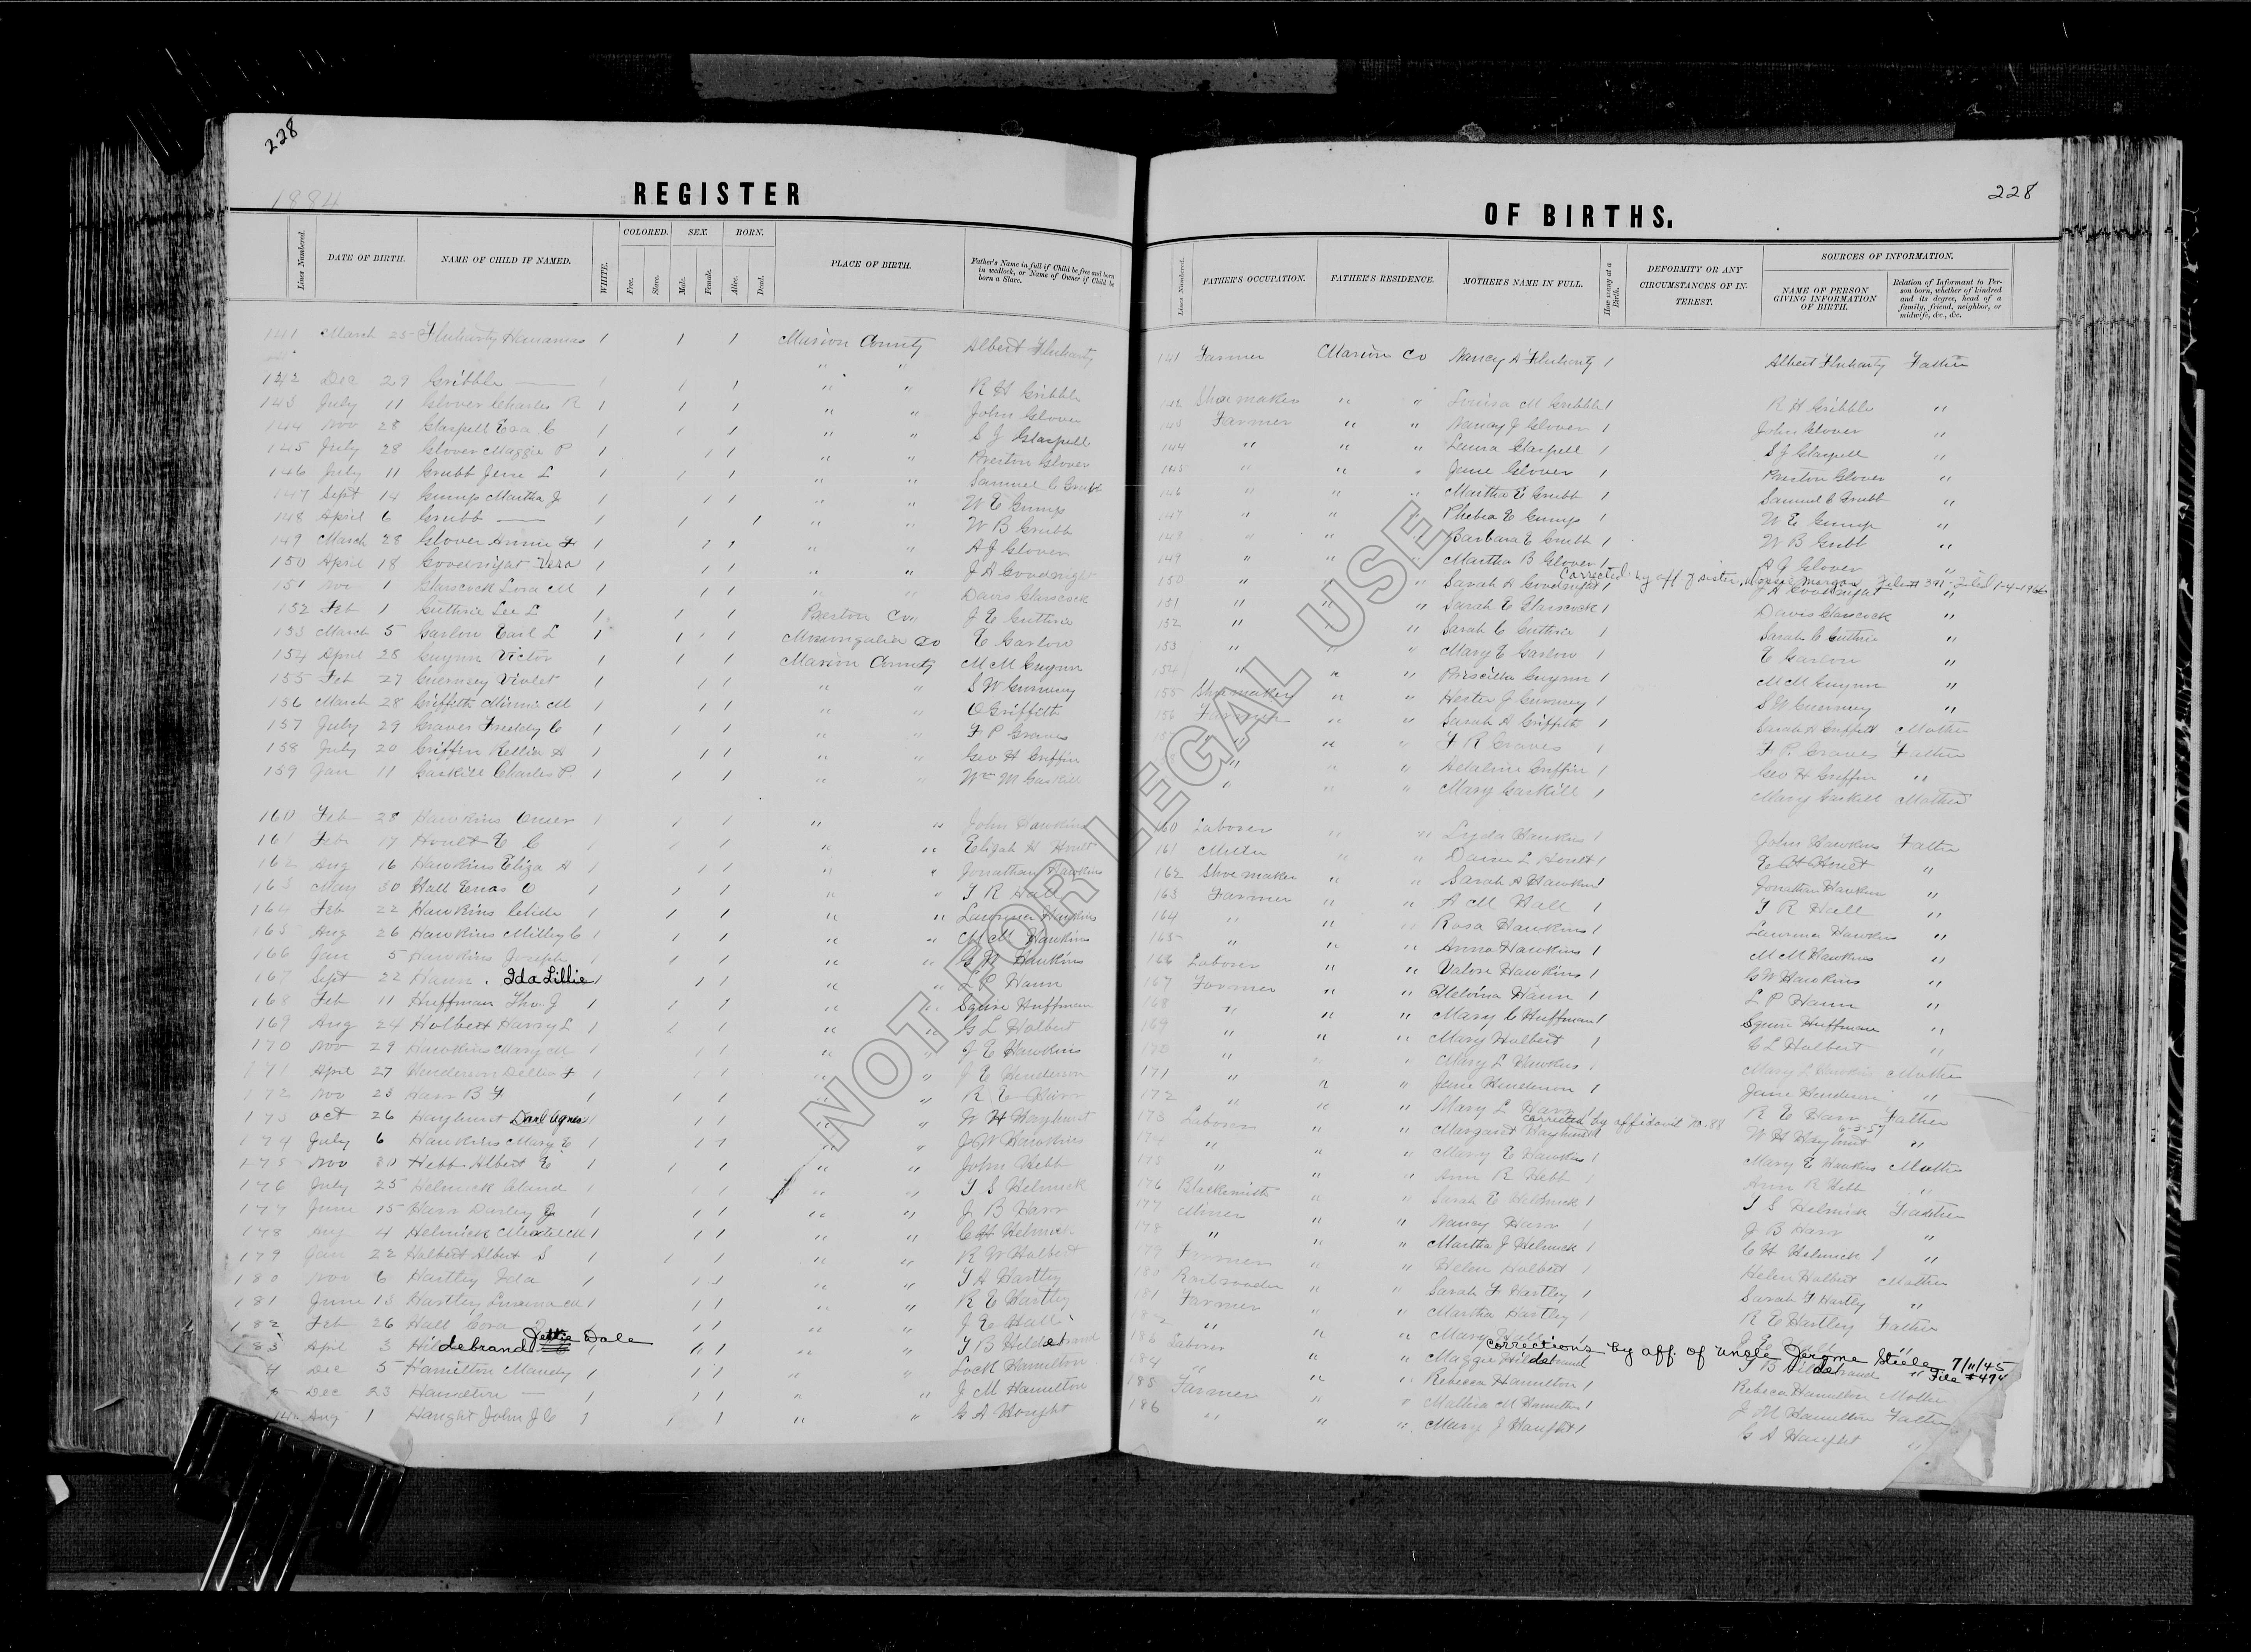 228
1884
REGISTER
Lines Numbered. DATE OF BIRTH. NAME OF CHILD IF NAMED. WHITE. COLORED. Free. Slave. SEX. Male. Female. BORN. Alive. Dead. PLACE OF BIRTH. Father's Name in full if Child be free and born in wedlock, or Name of Owner if Child be born a Slave.
141 March 25 Fluharty 1 1 1 Marion County Albert Fluharty
" "
142 Dec 29 Gribble — 1 1 1 " " R H Gribble
143 July 11 Glover Charles R 1 1 1 " " John Glover
144 Nov 28 Glaspell Eva C 1 1 1 " " S J Glaspell
145 July 28 Glover Maggie P 1 1 1 " " Preston Glover
146 July 11 Grubb Jesse L 1 1 1 " " Samuel C Grubb
147 Sept 14 Gump Martha J 1 1 1 " " W E Gump
148 April 6 Grubb — 1 1 1 " " W B Grubb
149 March 28 Glover Annie F 1 1 1 " " A J Glover
150 April 18 Goodnight Vera 1 1 1 " " J A Goodnight
151 Nov 1 Glasscock Lora M 1 1 1 " " Davis Glasscock
152 Feb 1 Guthrie Lee L 1 1 1 Preston Co. J E Guthrie
153 March 5 Garlow Earl L 1 1 1 Monongalia Co E Garlow
154 April 28 Guynn Victor 1 1 1 Marion County M M Guynn
155 Feb 27 Guernsey Violet 1 1 1 " " S W Guernsey
156 March 28 Griffith Minnie M 1 1 1 " " O Griffith
157 July 29 Graves Freddy C 1 1 1 " " F P Graves
158 July 20 Griffin Kellia A 1 1 1 " " Geo H Griffin
159 Jan 11 Gaskill Charles P. 1 1 1 " " Wm M Gaskill
160 Feb 28 Hawkins Omer 1 1 1 " " John Hawkins
161 Feb 17 Hoult E C 1 1 1 " " Elijah H Hoult
162 Aug 16 Hawkins Eliza A 1 1 1 " " Jonathan Hawkins
163 May 30 Hall Enos O 1 1 1 " " T R Hall
164 Feb 22 Hawkins Clide 1 1 1 " " Lawrence Hawkins
165 Aug 26 Hawkins Milley C 1 1 1 " " M M Hawkins
166 Jan 5 Hawkins Joseph 1 1 1 " " G W Hawkins
167 Sept 22 Haun . Ida Lillie 1 1 1 " " L P Haun
168 Feb 11 Huffman Tho. J 1 1 1 " " Squire Huffman
169 Aug 24 Holbert Harry L 1 1 1 " " G L Holbert
170 Nov 29 Hawkins Mary M 1 1 1 " " J E Hawkins
171 April 27 Henderson Dellia F 1 1 1 " " J E Henderson
172 Nov 23 Harr B F 1 1 1 " " R E Harr
173 Oct 26 Hayhurst Agnes 1 1 1 " " W H Hayhurst
174 July 6 Hawkins Mary E 1 1 1 " " J W Hawkins
175 Nov 30 Hebb Albert E 1 1 1 " " John Hebb
176 July 25 Helmick Cland 1 1 1 " " T S Helmick
177 June 15 Harr Darley J 1 1 1 " " J B Harr
178 Aug 4 Helmick M 1 1 1 " " C H Helmick
179 Jan 22 Holbert Albert S 1 1 1 " " R W Holbert
180 Nov 6 Hartley Ida 1 1 1 " " T A Hartley
181 June 13 Hartley M 1 1 1 " " R E Hartley
182 Feb 26 Hall Cora 1 1 1 " " J E Hall
183 April 3 Hildebrand Jettie Dale 1 1 " " T B Hildebrand
4 Dec 5 Hamilton Mandy 1 1 1 " " Lock Hamilton
5 Dec 23 Hamilton — 1 1 1 " " J M Hamilton
Aug 1 Haught John J C 1 1 1 " " G A Haught
228
OF BIRTHS.
Lines Numbered. FATHER'S OCCUPATION. FATHER'S RESIDENCE. MOTHER'S NAME IN FULL. How many at a Birth. DEFORMITY OR ANY CIRCUMSTANCES OF INTEREST. SOURCES OF INFORMATION. NAME OF PERSON GIVING INFORMATION OF BIRTH. Relation of Informant to Person born, whether of kindred and its degree, head of a family, friend, neighbor, or midwife, &c., &c.
141 Farmer Marion Co Nancy A Fluharty 1 Albert Fluharty Father
142 Shoemaker " " Louisa M Gribble 1 R H Gribble "
143 Farmer " " Nancy J Glover 1 John Glover "
144 " " " Laura Glaspell 1 S J Glaspell "
145 " " " Jane Glover 1 Preston Glover "
146 " " " Martha E Grubb 1 Samuel C Grubb "
147 " " Phebea E Gump 1 W E Gump "
148 " " Barbara E Grubb 1 W B Grubb "
149 " " Martha B Glover 1 A J Glover "
Corrected by aff of sister, Morgan File # 391 - Filed 1-4-1966
150 " " Sarah A Goodnight 1 J A Goodnight "
151 " " " Sarah E Glasscock 1 Davis Glasscock "
152 " " Sarah C Guthrie 1 Sarah C Guthrie "
153 " Mary E Garlow 1 E Garlow "
154 " " " Priscilla Guynn 1 M M Guynn "
155 Shoemaker " " Hester J Guernsey 1 S W Guernsey "
156 Farmer " " Sarah A Griffith 1 Sarah A Griffith Mother
" " F R Graves 1 F P Graves Father
" " " Adaline Griffin 1 Geo H Griffin "
" " " Mary Gaskill 1 Mary Gaskill Mother
160 Laborer " " Lyda Hawkins 1 John Hawkins Father
161 Miller " " L Hoult 1 E H Hoult "
162 Shoemaker " " Sarah A Hawkins 1 Jonathan Hawkins "
163 Farmer " " A M Hall 1 T R Hall "
164 " " " Rosa Hawkins 1 Lawrence Hawkins "
165 " " " Anna Hawkins 1 M M Hawkins "
166 Laborer " " Valora Hawkins 1 G W Hawkins "
167 Farmer " " Melvina Haun 1 L P Haun "
168 " " " Mary C Huffman 1 Squire Huffman "
169 " " " Mary Holbert 1 G L Holbert "
170 " " " Mary L Hawkins 1 Mary L Hawkins Mother
171 " " " Jane Henderson 1 Jane Henderson "
172 " " " Mary L Harr 1 R E Harr Father
corrected by affidavit No. 88
173 Laborer " " Margaret Hayhurst 1 W H Hayhurst "
174 " " " Mary E Hawkins 1 Mary E Hawkins Mother
175 " " " Ann R Hebb 1 Ann R Hebb "
176 Blacksmith " " Sarah E Helmick 1 T S Helmick Father
177 Miner " " Nancy Harr 1 J B Harr "
178 " " " Martha J Helmick 1 C H Helmick "
179 Farmer " " Helen Holbert 1 Helen Holbert Mother
180 Railroader " " Sarah F Hartley 1 Sarah F Hartley "
181 Farmer " " Martha Hartley 1 R E Hartley Father
182 " " " Mary Hall 1 J E Hall "
Corrections by aff. of uncle Jerome Steele 7/11/45 File # 474
183 Laborer " " Maggie Hildebrand T B Hildebrand "
184 " " " Rebecca Hamilton 1 Rebecca Hamilton Mother
185 Farmer " " M Hamilton 1 J M Hamilton Father
186 " " " Mary J Haught 1 G A Haught "
NOT FOR LEGAL USE